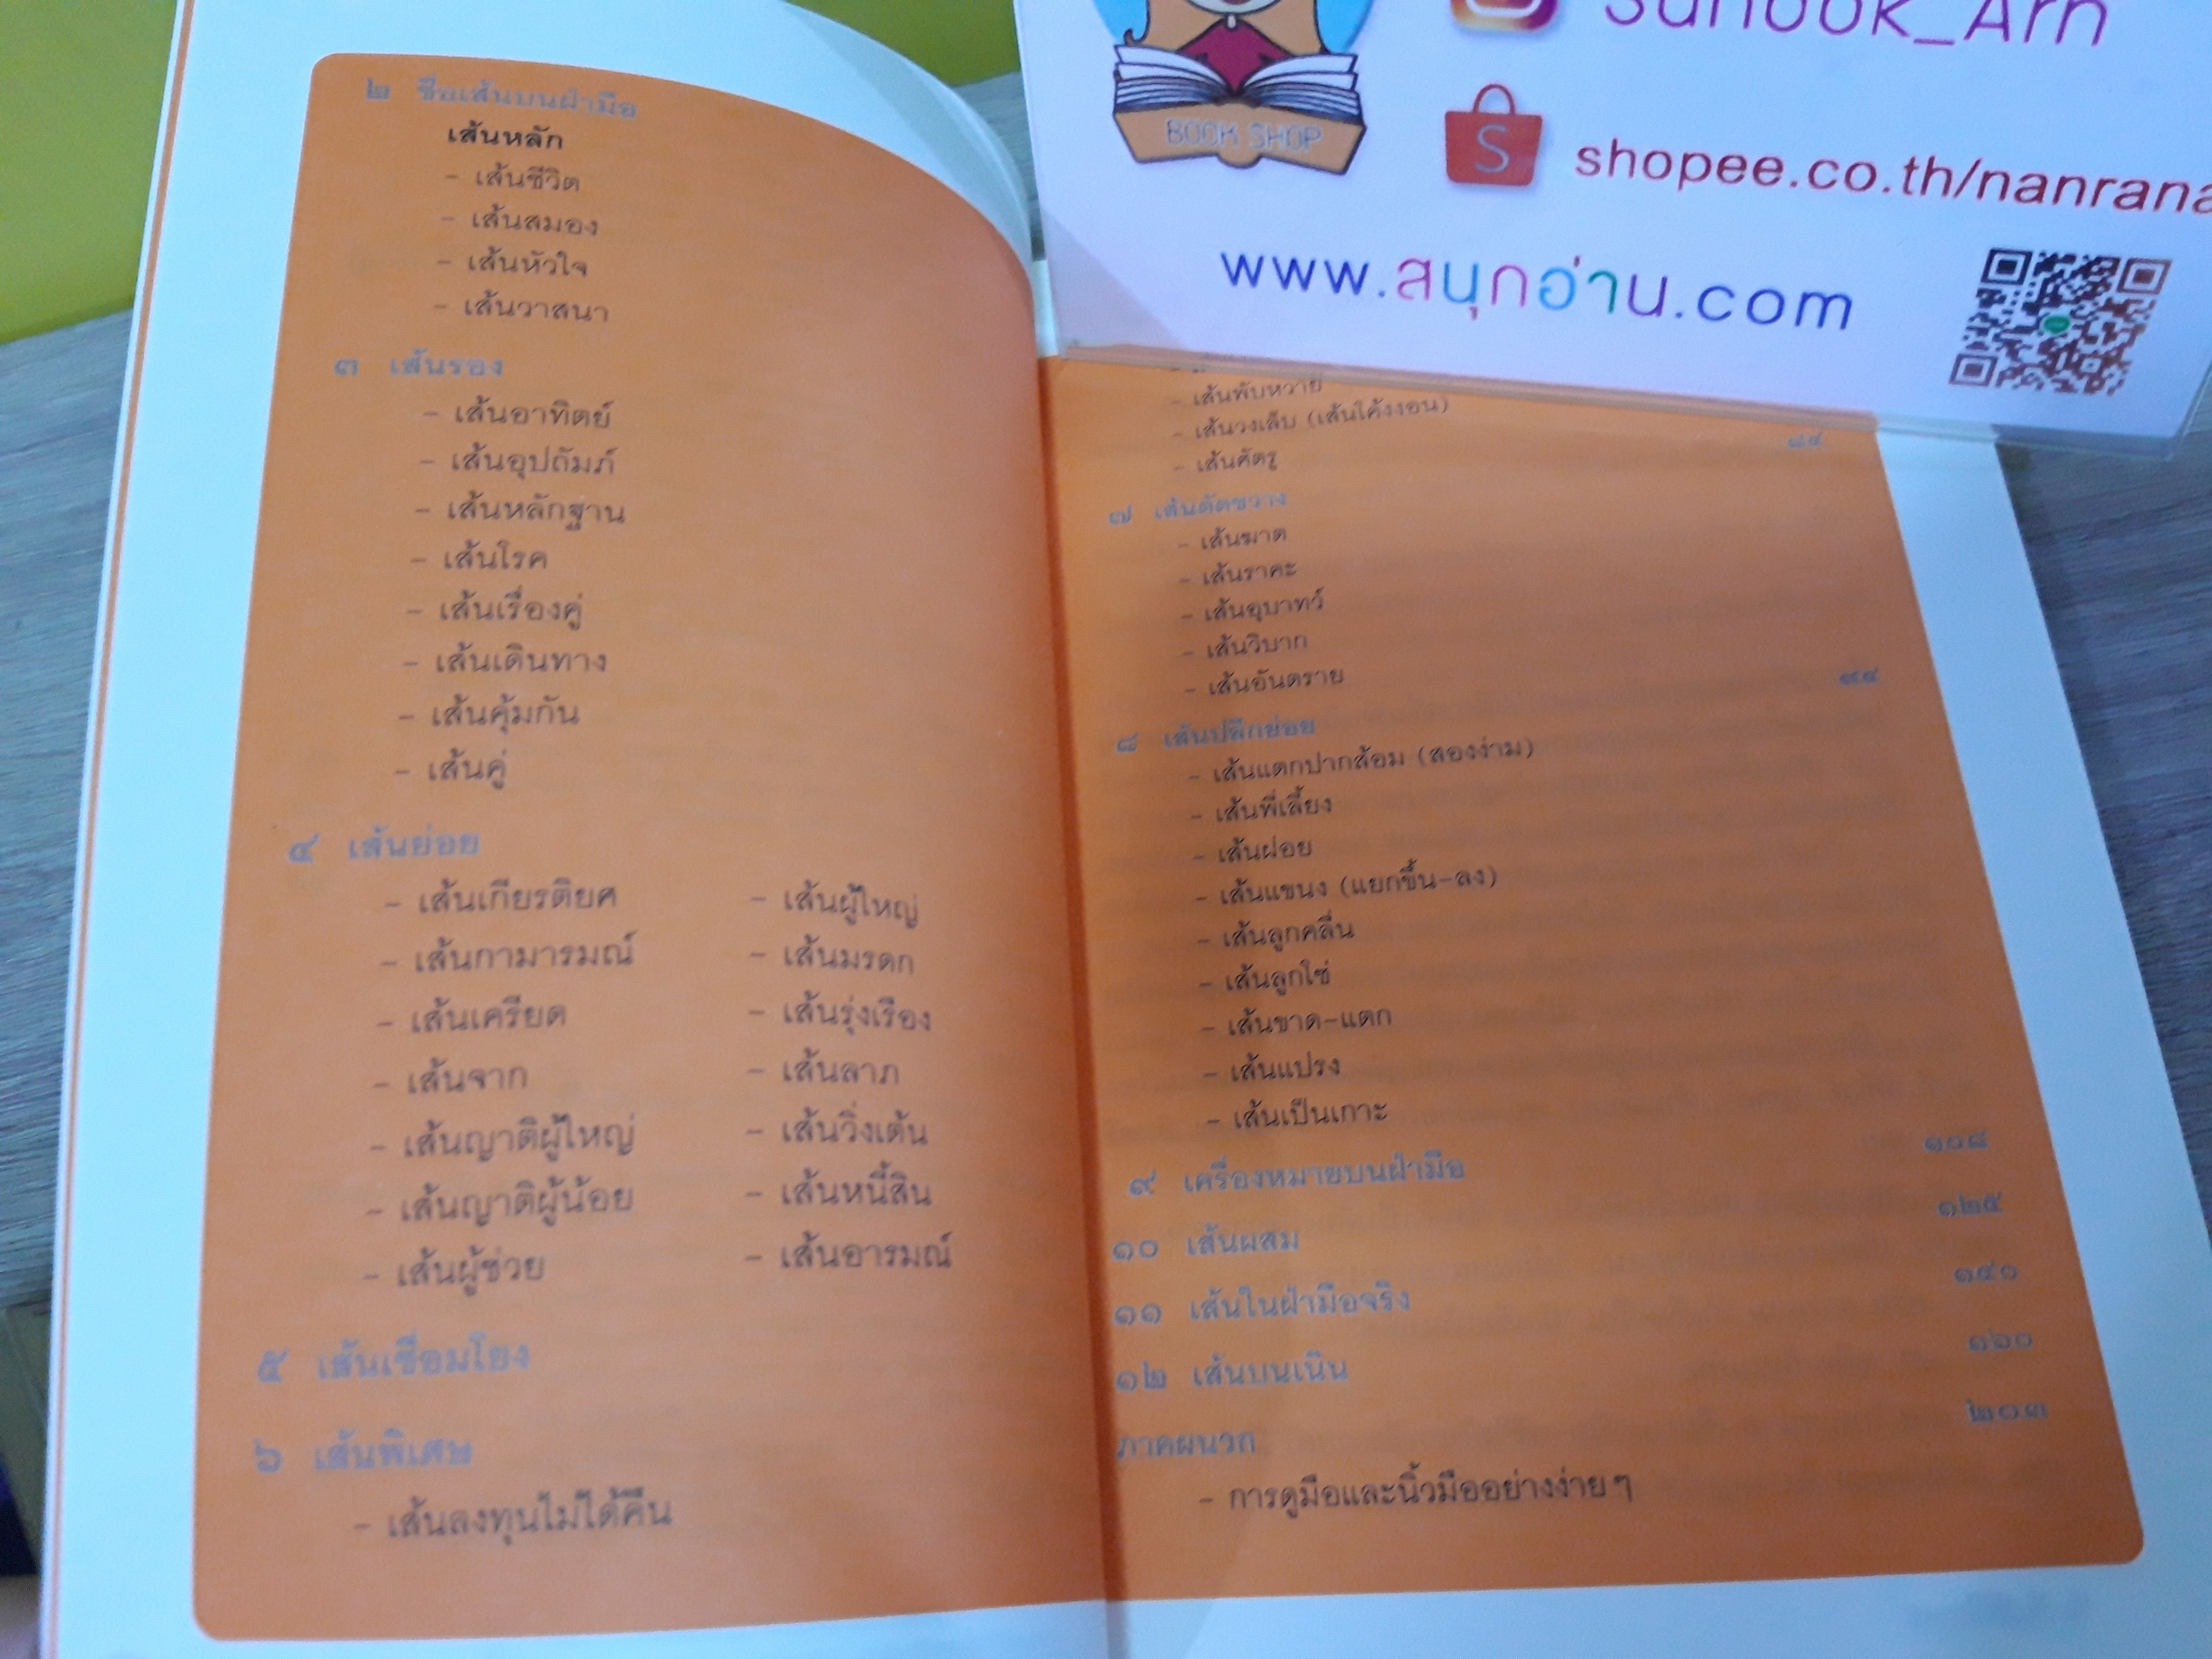 ๒ ชื่อเส้นบนฝ่ามือ
เส้นหลัก
- เส้นชีวิต
- เส้นสมอง
- เส้นหัวใจ
- เส้นวาสนา
๓ เส้นรอง
- เส้นอาทิตย์
- เส้นอุปถัมภ์
- เส้นหลักฐาน
- เส้นโรค
- เส้นเรื่องคู่
- เส้นเดินทาง
- เส้นคุ้มกัน
- เส้นคู่
๔ เส้นย่อย
- เส้นเกียรติยศ - เส้นผู้ใหญ่
- เส้นกามารมณ์ - เส้นมรดก
- เส้นเครียด - เส้นรุ่งเรือง
- เส้นจาก - เส้นลาภ
- เส้นญาติผู้ใหญ่ - เส้นวิ่งเต้น
- เส้นญาติผู้น้อย - เส้นหนี้สิน
- เส้นผู้ช่วย - เส้นอารมณ์
๕ เส้นเชื่อมโยง
๖ เส้นพิเศษ
- เส้นลงทุนไม่ได้คืน
Sanook_Arn
BOOK SHOP
S
shopee.co.th/nanrana
www.สนุกอ่าน.com
- เส้นพับหวาย
- เส้นวงเล็บ (เส้นโค้งงอน)
- เส้นศัตรู
๗ เส้นตัดขวาง ๘๔
- เส้นฆาต
- เส้นราคะ
- เส้นอุบาทว์
- เส้นวิบาก
- เส้นอันตราย
๘ เส้นปลีกย่อย ๙๔
- เส้นแตกปากส้อม (สองง่าม)
- เส้นพี่เลี้ยง
- เส้นฝอย
- เส้นแขนง (แยกขึ้น-ลง)
- เส้นลูกคลื่น
- เส้นลูกโซ่
- เส้นขาด-แตก
- เส้นแปรง
- เส้นเป็นเกาะ
๙ เครื่องหมายบนฝ่ามือ ๑๐๘
๑๐ เส้นผสม ๑๒๕
๑๑ เส้นในฝ่ามือจริง ๑๔๐
๑๒ เส้นบนเนิน ๑๖๐
ภาคผนวก ๒๐๓
- การดูมือและนิ้วมืออย่างง่ายๆ